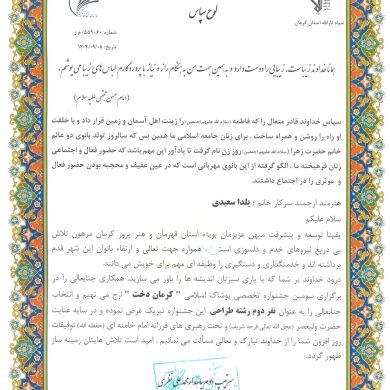 لوح سپاس
سپاه ثارالله استان کرمان
شماره: ۵۵۹/۰۶۰/م ز
تاریخ: ۱۴۰۲/۰۹/۰۸
همانا خداوند زیباست، زیبایی را دوست دارد و به همین جهت من به هنگام راز و نیاز با پروردگارم لباس های زیبا می پوشم.
(امام حسن مجتبی علیه سلام)
سپاس خداوند قادر متعال را که فاطمه (سلام الله علیها) را زینت اهل آسمان و زمین قرار داد و با خلقت
او راه را روشن و همراه ساخت. برای زنان جامعه اسلامی ما همین بس که سالروز تولد بانوی دو عالم
حضرت زهرا (سلام الله علیها) روز زن نام گرفت تا یادآور این مهم باشد که حضور فعال و اجتماعی
زنان فرهیخته ما، الگو گرفته از این بانوی مهربانی است که در عین عفیف و محجبه بودن حضور فعال
و موثری را در اجتماع داشتند.
هنرمند ارجمند سرکار خانم : یلدا سعیدی
سلام علیکم
یقینا توسعه و پیشرفت میهن عزیزمان بویژه استان قهرمان و هنر پرور کرمان مرهون تلاش
بی دریغ نیروهای خدم و دلسوزی است همواره جهت تعالی و ارتقاء بانوان این شهر قدم
برداشته اند و خدمتگذاری و دستگیری را وظیفه ای مهم برای خویش می دانند.
درود خداوند بر شما که با یاری سبزتان اندیشه ها را باور می سازید. همکاری جنابعالی را در
برگزاری سومین جشنواره تخصصی پوشاک اسلامی " کرمان دخت " ارج می نهیم و انتخاب
جنابعالی را به عنوان نفر دوم رشته طراحی این جشنواره تبریک عرض نموده و در سایه عنایت
حضرت ولیعصر (عجل الله تعالی فرجه شریف) و تحت رهبری های فرزانه امام خامنه ای (حفظه الله) توفیقات
روز افزون شما را از خداوند تبارک و تعالی مسألت می نمائیم. امید است تلاش هایتان زمینه ساز
ظهور گردد.